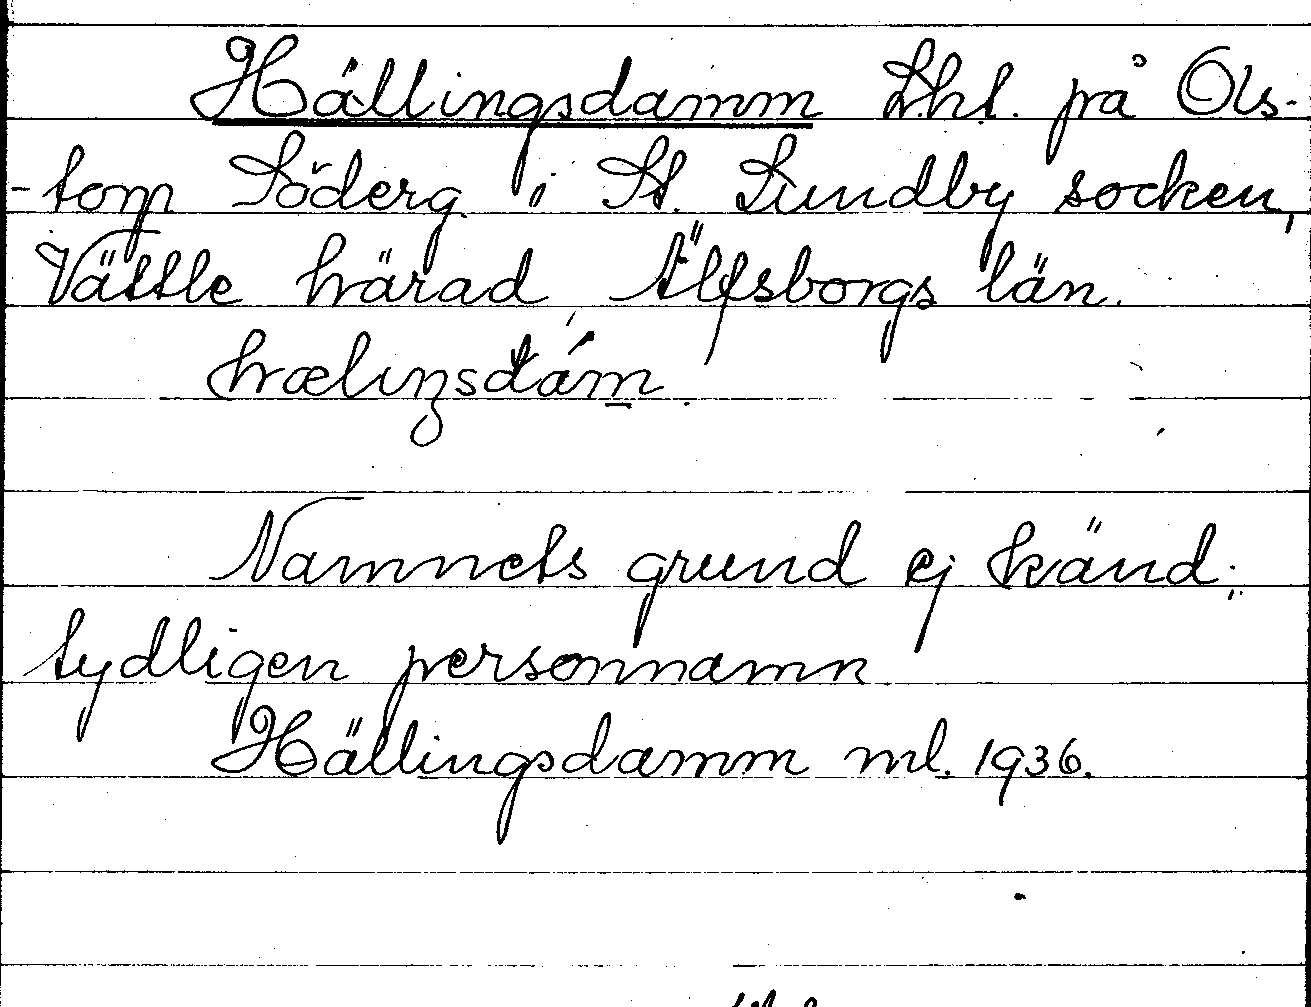 Hällingsdamm Lht. på Ols-
-torp Söderg. i St. Lundby socken,
Vättle härad, Älfsborgs län.
hælıŋsdám.
Namnets grund ej känd;
tydligen personnamn.
Hällingsdamm ml. 1936.